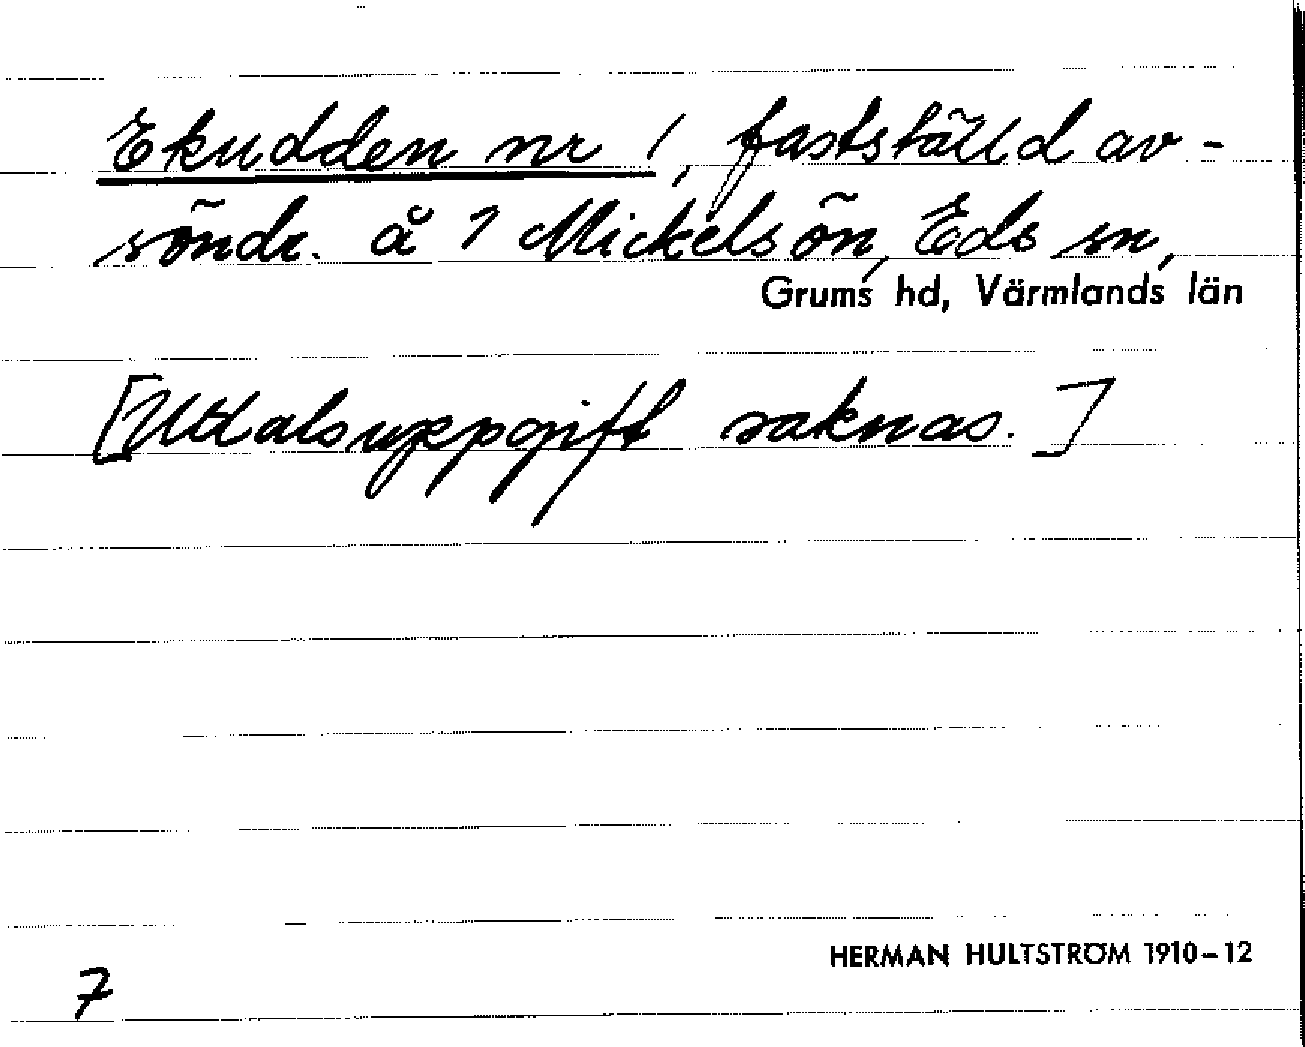 Ekudden nr 1, fastställd av-
söndr. å 1 Mickelsön, Eds sn,
Grums hd, Värmlands län
[Uttalsuppgift saknas.]
HERMAN HULTSTRÖM 1910-12
7